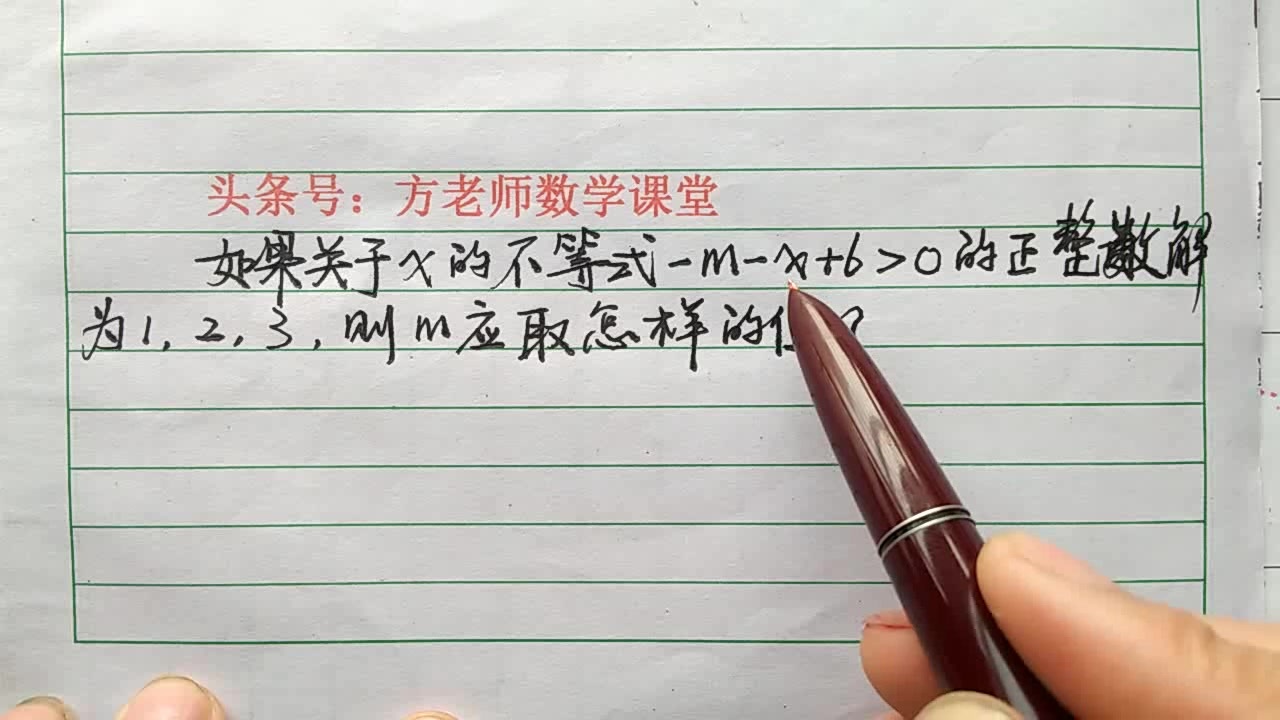 头条号：方老师数学课堂
如果关于x的不等式-m-x+6>0的正整数解
为1，2，3，则m应取怎样的